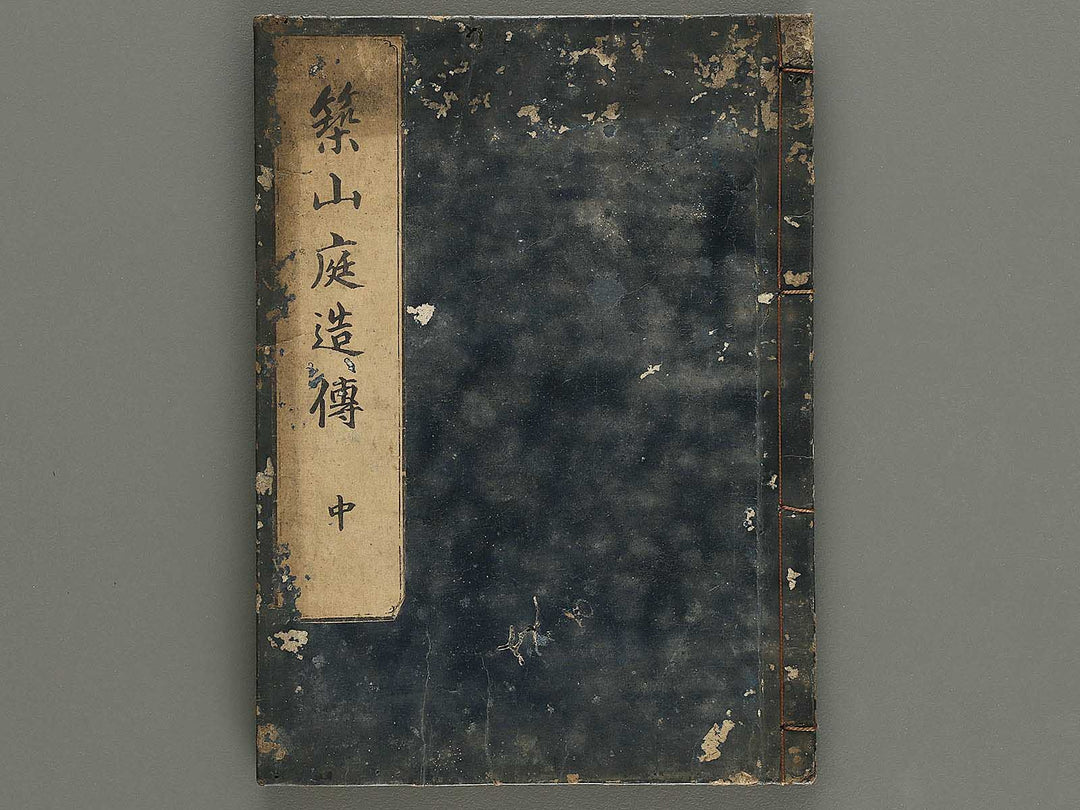 築山庭造傳 中